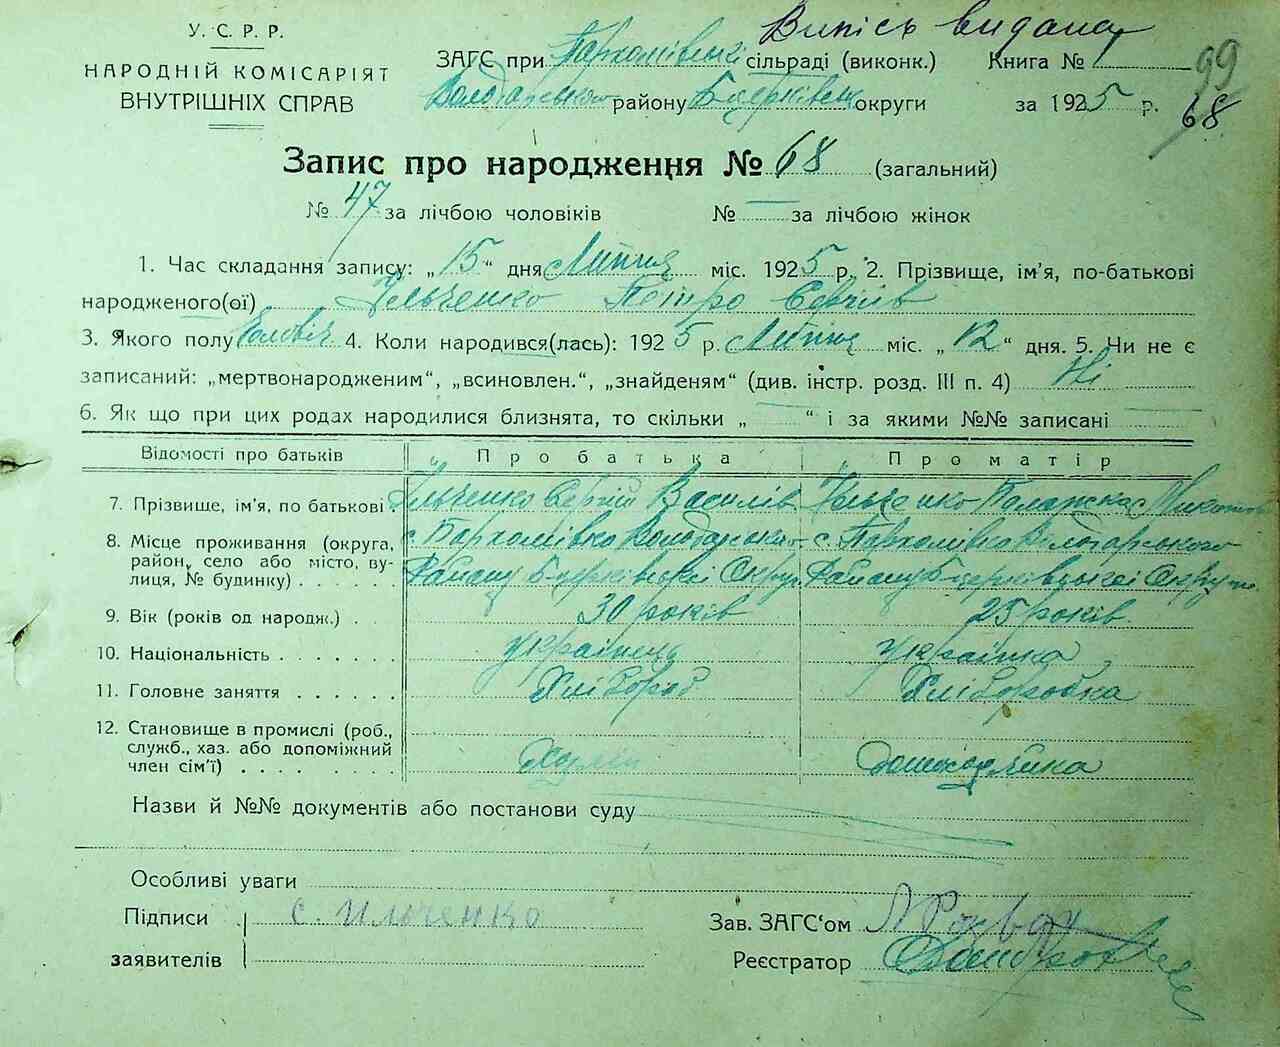 Випісь видана
У. С. Р. Р.
НАРОДНІЙ КОМІСАРІЯТ
ВНУТРІШНІХ СПРАВ
ЗАГС при Пархомівській сільраді (виконк.) Книга № 1 99
Володарського району Б.церківськ округи за 1925 р. 68
Запис про народження № 68 (загальний)
№ 47 за лічбою чоловіків № — за лічбою жінок
1. Час складання запису: „15“ дня Липня міс. 1925 р. 2. Прізвище, ім'я, по-батькові
народженого(ої) Ільченко Петро Сергіїв
3. Якого полу Чоловіч 4. Коли народився(лась): 1925 р. Липня міс. „12“ дня. 5. Чи не є
записаний: „мертвонародженим“, „всиновлен.“, „знайденям“ (див. інстр. розд. III п. 4) Ні
6. Як що при цих родах народилися близнята, то скільки „ “ і за якими №№ записані
Відомості про батьків Про батька Про матір
7. Прізвище, ім'я, по батькові Ільченко Сергій Василів Ільченко Палажка
8. Місце проживання (округа, с. Пархомівка Володарськ с. Пархомівка Володарського
район, село або місто, ву- Району Б-церківської Округи Району Б-церківської Округи
лиця, № будинку)
9. Вік (років од народж.) 30 років 25 років
10. Національність українець українка
11. Головне заняття Хлібороб Хліборобка
12. Становище в промислі (роб.,
служб., хаз. або допоміжний
член сім'ї) Хазяїн домохазяйка
Назви й №№ документів або постанови суду
Особливі уваги
Підписи с. Ильченко Зав. ЗАГС‘ом
заявителів Реєстратор